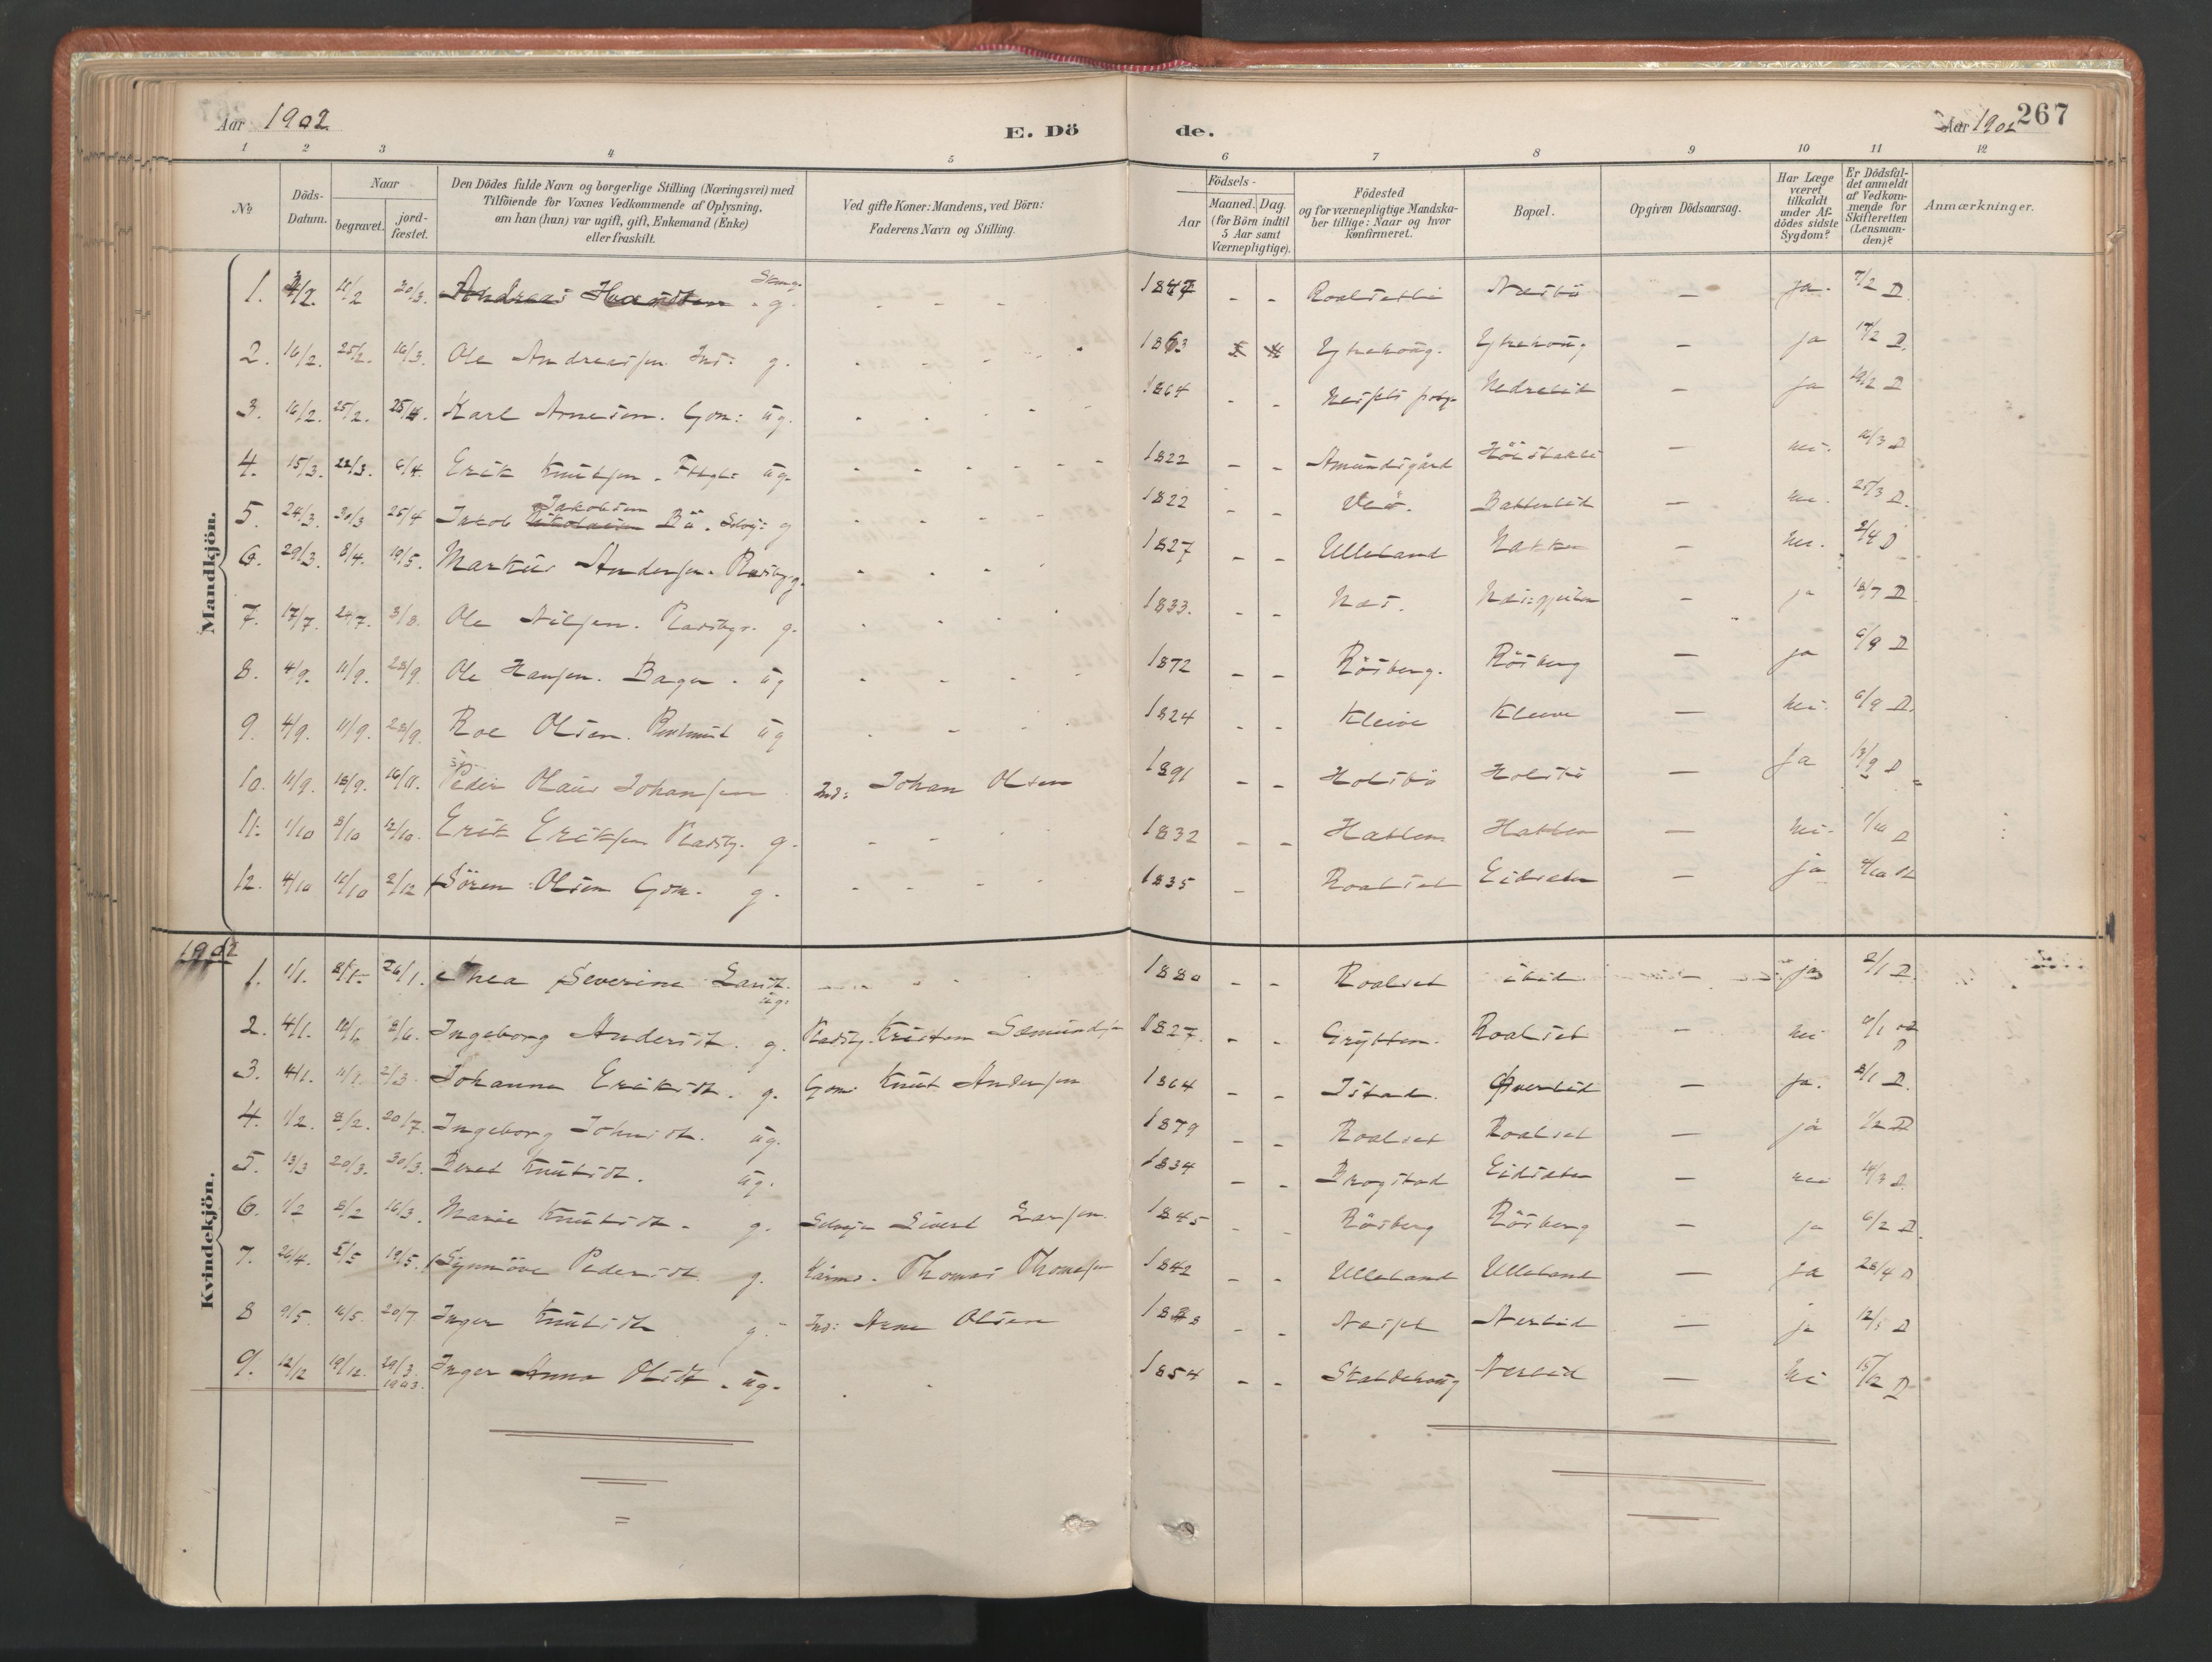 Aar 1902
E. Dö
de.
Aar 1902
267
1 2 3 4 5 6 7 8 9 10 11 12
№
Döds-Datum.
Naar
begravet.
jord-fæstet.
Den Dödes fulde Navn og borgerlige Stilling (Næringsvei) med
Tilföiende for Voxnes Vedkommende af Oplysning,
om han (hun) var ugift, gift, Enkemand (Enke)
eller fraskilt.
Ved gifte Koner: Mandens, ved Börn:
Faderens Navn og Stilling.
Födsels-
Aar
Maaned. Dag.
(for Börn indtil
5 Aar samt
Værnepligtige).
Födested
og for værnepligtige Mandska-
ber tillige: Naar og hvor
konfirmeret.
Bopæl.
Opgiven Dödsaarsag.
Har Læge
været
tilkaldt
under Af-
dödes sidste
Sygdom?
Er Dödsfal-
det anmeldt
af Vedkom-
mende for
Skifteretten
(Lensman-
den)?
Anmærkninger.
Mandkjön.
1. 11/2 20/3. Andreas Hansen g. - - - Roalsetli Næsbö - ja. 7/2 D.
2. 16/2. 25/2. 16/3. Ole Andreasen Ind: g. 1863 Ytrehoug. Ytrehoug - ja 17/2 D.
3. 16/2. 25/2. Karl Arnesen. Gm: ug. 1864 - - Nedrelid - ja 19/2 D
4. 15/3. 22/3. 6/4 Erik Knutsen. ug. - - - 1822 - - Amundsgård - nei. 16/3 D
5. 24/3. 30/3 25/4 Jakob Jakobsen Bö. Selvej: g 1822 - - Veö. Battenlid - nei. 25/3 D.
6. 29/3. 8/4. 19/5. Markus Andersen. Pladsbg. g. 1827 - - Ulleland Nakken - nei. 2/4 D
7. 17/7. 24/7. 3/8. Ole Nilsen. Pladsbgr. g. 1833. - - Næs. - ja 18/7 D
8. 4/9. 11/9. 28/9. Ole Hansen. Bager. ug 1872 - - Rösberg. Rösberg - ja 6/9 D
9. 4/9. 11/9. 28/9. Roe Olsen. ug 1824 - - Kleive Kleive - nei. 6/9 D.
10. 11/9. 18/9. 16/11. Peder Olaus Johansen Ind: Johan Olsen 1891 - - Holsbö Holsbö - Ja 13/9 D
11. 1/10 8/10 12/10. Erik Eriksen Pladsbg. g. - - 1832 - - Hatlen Hatlen - nei. D
12. 4/10 11/10 2/12 Sören Olsen Gm. g. - - - 1835 - Roalset Eidseter - ja 4/10 D
Kvindekjön.
1902
1. 1/1. 8/1. 26/1. Thea Severine Larsdt. ug. 1880 - - Roalset ibid - ja 2/1 D.
2. 4/1. Ingeborg Andersdt. g. Pladsbg. Kristen Sæmundsen 1827. - - Grytten. Roalset - nei D
3. 4/1. 11/1. 2/3. Johanna Eriksdt. g. Gm: Knut Andersen 1864 - - Istad. Øverlid - ja. 8/1 D.
4. 1/2. 8/2. 20/7. Ingeborg Johnsdt. ug. 1879 - - Roalset Roalset - ja 1/2 D
5. 13/3 20/3. 30/3. Beret Knutsdt. ug. 1834 - - Drogstad Eidseter - nei 14/3 D.
6. 1/2 8/2 16/3. Marie Knutsdt. g. Selvej: Sivert Larsen. 1845 - - Rösberg Rösberg - ja 6/2 D.
7. 26/4. 5/5 19/5. Synnöve Pedersdt. g. Kårmd. Thomas Thomesen 1842 - - Ulleland Ulleland - Ja 28/4 D
8 9/5. 16/5. 20/7 Inger Knutsdt. g. Ind: Arne Olsen - - Nerlid - ja 12/5 D
9. 12/12 19/12. 29/3. 1903. Inger Anna Olsdt. ug. - 1854 - - Skaldehoug Nerlid - nei 15/12 D